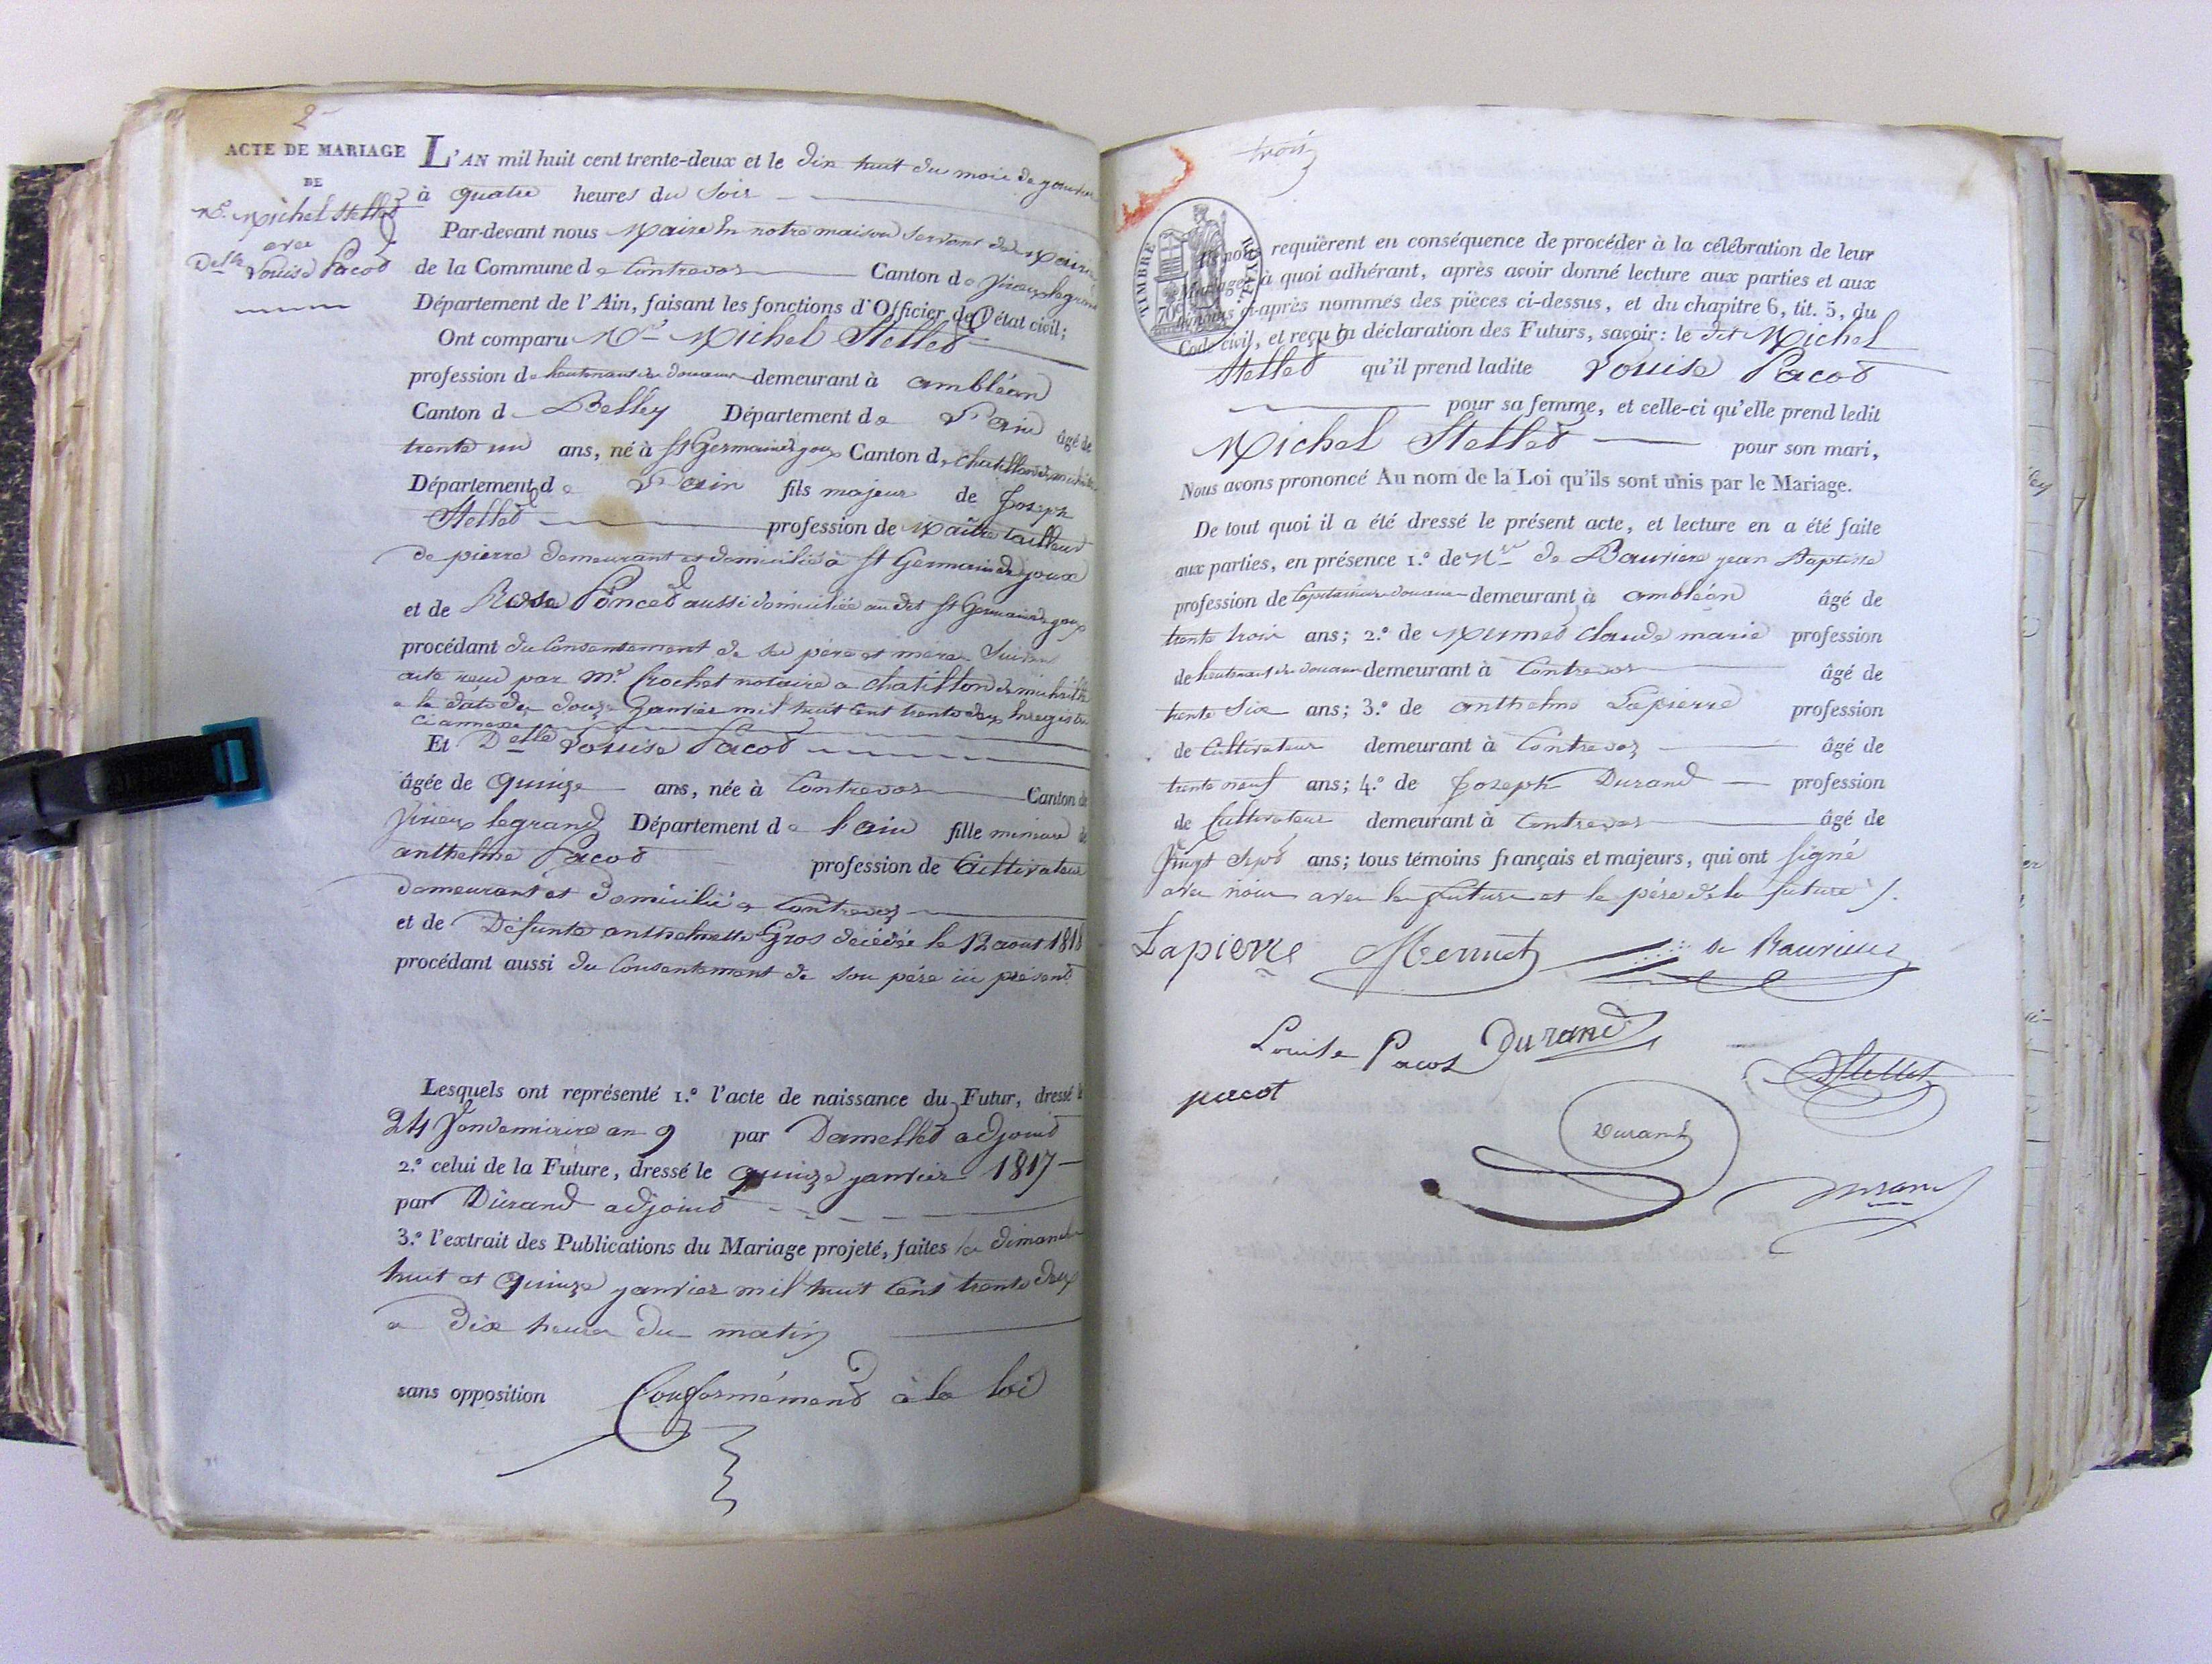 2
ACTE DE MARIAGE
DE
Mr. Michel Stellet
avec
Delle Louise Pacot
L'AN mil huit cent trente-deux et le dix huit du mois de janvier
à quatre heures du Soir
Par-devant nous Maire en notre maison servant de Mairie
de la Commune de Contrevoz Canton de Virieux legrand
Département de l'Ain, faisant les fonctions d'Officier de l'état civil;
Ont comparu Mr Michel Stellet
profession de lieutenant des douanes demeurant à ambléon
Canton d Belley Département de L'ain âgé de
trente un ans, né à St Germain de joux Canton de chatillon de michaille
Département de L'ain fils majeur de Joseph
Stellet profession de Maître tailleur
de pierre demeurant et domicilié à St Germain de joux
et de Rose Poncet aussi domiciliée au dit St Germain de joux
procédant du Consentement de ses père et mère Suivant
acte reçu par Mr. Crochet notaire a chatillon de michaille
a la date du douze Janvier mil huit cent trente deux Enregistré
ci annexé
Et Delle Louise Pacot
âgée de quinze ans, née à Contrevoz Canton de
Virieux legrand Département de l'ain fille mineure de
anthelme Pacot profession de Cultivateur
demeurant et domicilié a Contrevoz
et de Défunte anthelmette Gros décédée le 12 aout 1818
procédant aussi du Consentement de son père ici présent
Lesquels ont représenté 1.º l'acte de naissance du Futur, dressé le
24 Vendemiaire an 9 par Damellet adjoint
2.º celui de la Future, dressé le quinze janvier 1817
par Durand adjoint
3.º l'extrait des Publications du Mariage projeté, faites les dimanche
huit et quinze janvier mil huit Cent trente deux
a dix heures du matin
sans opposition Conformément à la loi
trois
TIMBRE ROYAL
70
Ils nous requièrent en conséquence de procéder à la célébration de leur
Mariage; à quoi adhérant, après avoir donné lecture aux parties et aux
témoins ci-après nommés des pièces ci-dessus, et du chapitre 6, tit. 5, du
Code civil, et reçu la déclaration des Futurs, savoir: le dit Michel
Stellet qu'il prend ladite Louise Pacot
pour sa femme, et celle-ci qu'elle prend ledit
Michel Stellet pour son mari,
Nous avons prononcé Au nom de la Loi qu'ils sont unis par le Mariage.
De tout quoi il a été dressé le présent acte, et lecture en a été faite
aux parties, en présence 1.º de Mr de Baurière jean Baptiste
profession de Capitaine des douanes demeurant à ambléon âgé de
trente trois ans; 2.º de Mermet claude marie profession
de lieutenant des douanes demeurant à Contrevoz âgé de
trente Six ans; 3.º de anthelme Lapierre profession
de Cultivateur demeurant à Contrevoz âgé de
trente neuf ans; 4.º de Joseph Durand profession
de Cultivateur demeurant à Contrevoz âgé de
Vingt Sept ans; tous témoins français et majeurs, qui ont signé
avec nous avec les future et le père de la future
Lapierre Mermet de Baurière
Louise Pacot Durand
Stellet
pacot
Durand
Durand